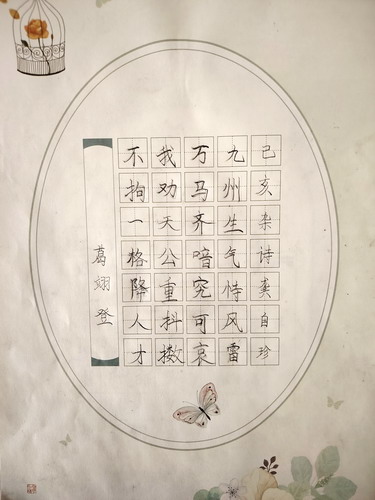 己亥杂诗龚自珍
九州生气恃风雷
万马齐喑究可哀
我劝天公重抖擞
不拘一格降人才
葛翊登